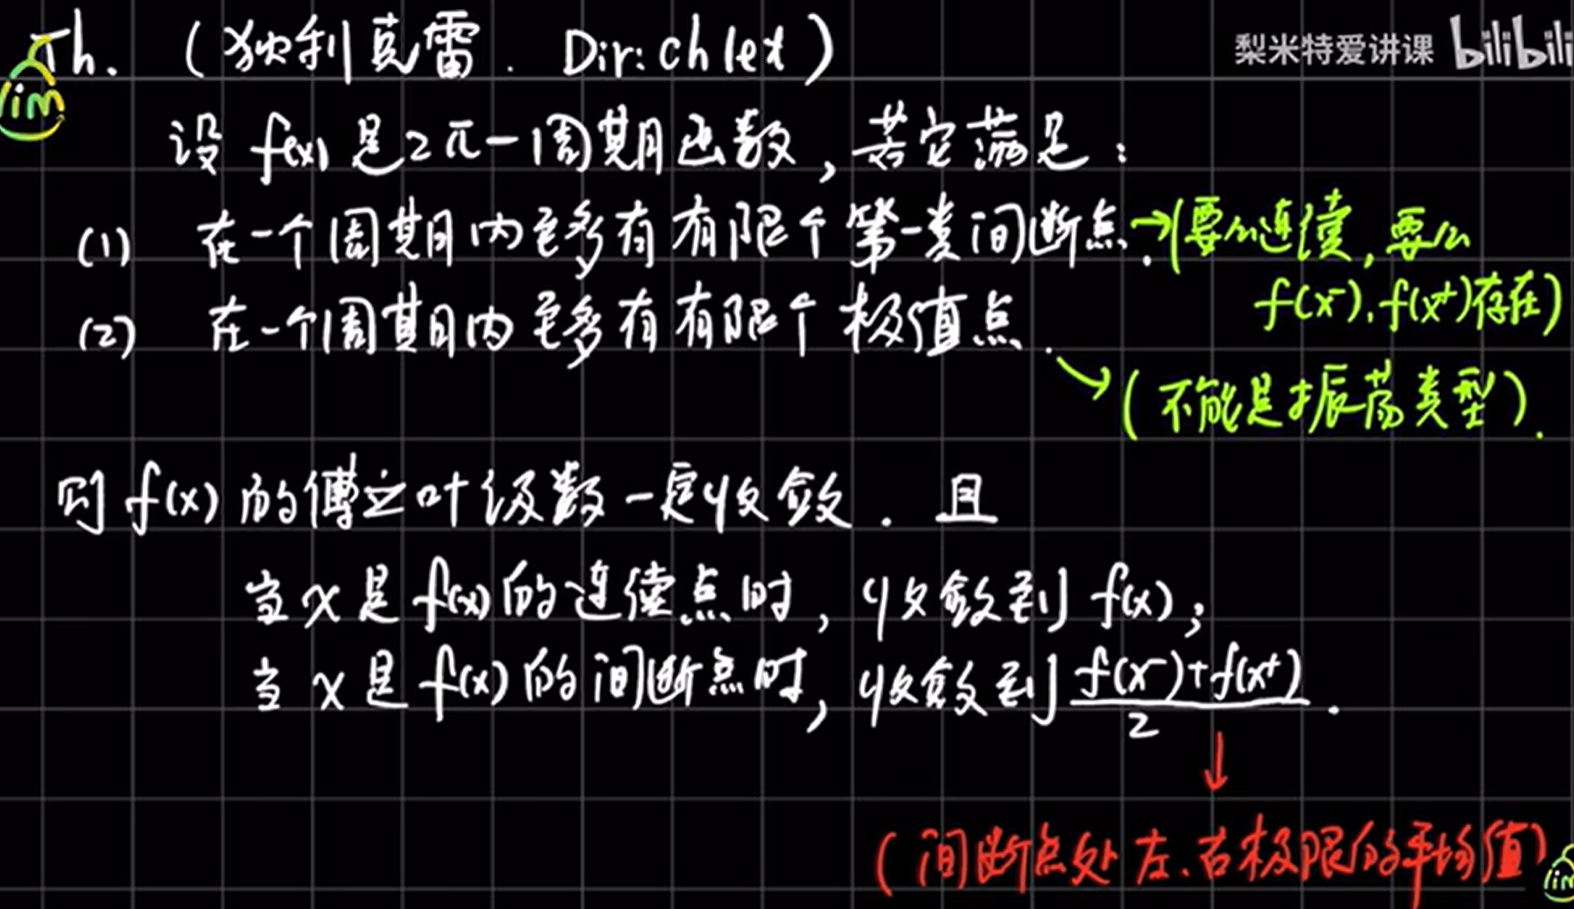 Th. (狄利克雷. Dirichlet)
梨米特爱讲课 bilibili
lim
设 f(x) 是2π-周期函数, 若它满足:
(1) 在一个周期内至多有有限个第一类间断点. →(要么连续, 要么
f(x⁻), f(x⁺)存在)
(2) 在一个周期内至多有有限个极值点.
→(不能是振荡类型).
则 f(x) 的傅立叶级数一定收敛. 且
当 x 是 f(x) 的连续点时, 收敛到 f(x);
当 x 是 f(x) 的间断点时, 收敛到 (f(x⁻)+f(x⁺))/2.
(间断点处左、右极限的平均值)
lim